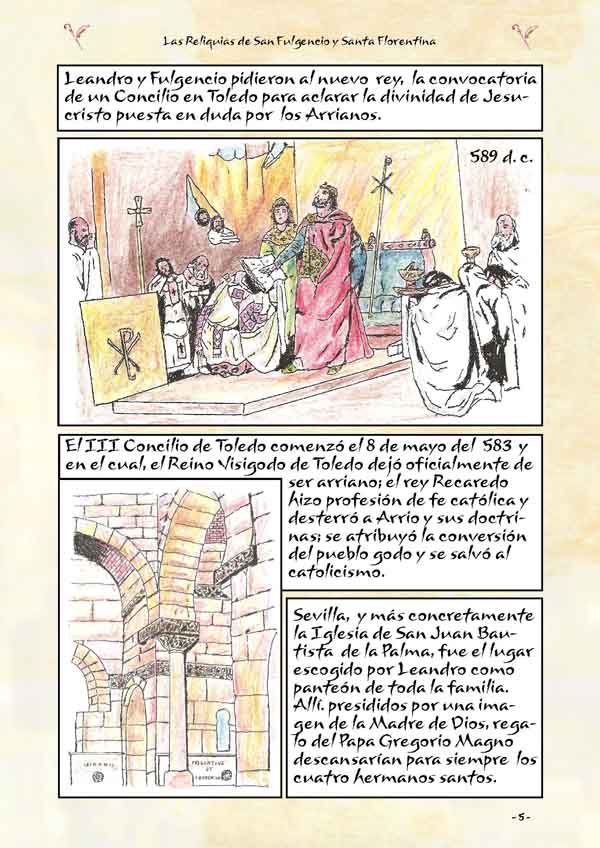 Las Reliquias de San Fulgencio y Santa Florentina
Leandro y Fulgencio pidieron al nuevo rey, la convocatoria
de un Concilio en Toledo para aclarar la divinidad de Jesu-
cristo puesta en duda por los Arrianos.
589 d. c.
El III Concilio de Toledo comenzó el 8 de mayo del 583 y
en el cual, el Reino Visigodo de Toledo dejó oficialmente de
ser arriano; el rey Recaredo
hizo profesión de fe católica y
desterró a Arrio y sus doctri-
nas; se atribuyó la conversión
del pueblo godo y se salvó al
catolicismo.
Sevilla, y más concretamente
la Iglesia de San Juan Bau-
tista de la Palma, fue el lugar
escogido por Leandro como
panteón de toda la familia.
Allí, presididos por una ima-
gen de la Madre de Dios, rega-
lo del Papa Gregorio Magno
descansarían para siempre los
cuatro hermanos santos.
- 5 -